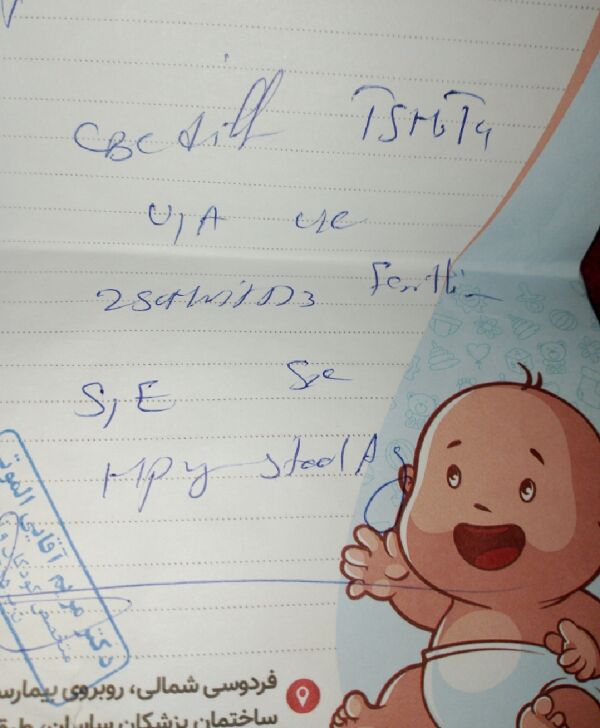 CBC diff TSH, T4
U/A U/C
25OHVitD3 Ferritin
S/E S/C
H Py stool Ag
دکتر مریم آقایی الموتی
متخصص کودکان و
فردوسی شمالی، روبروی بیمارس
ساختمان پزشکان ساسان، طبقه